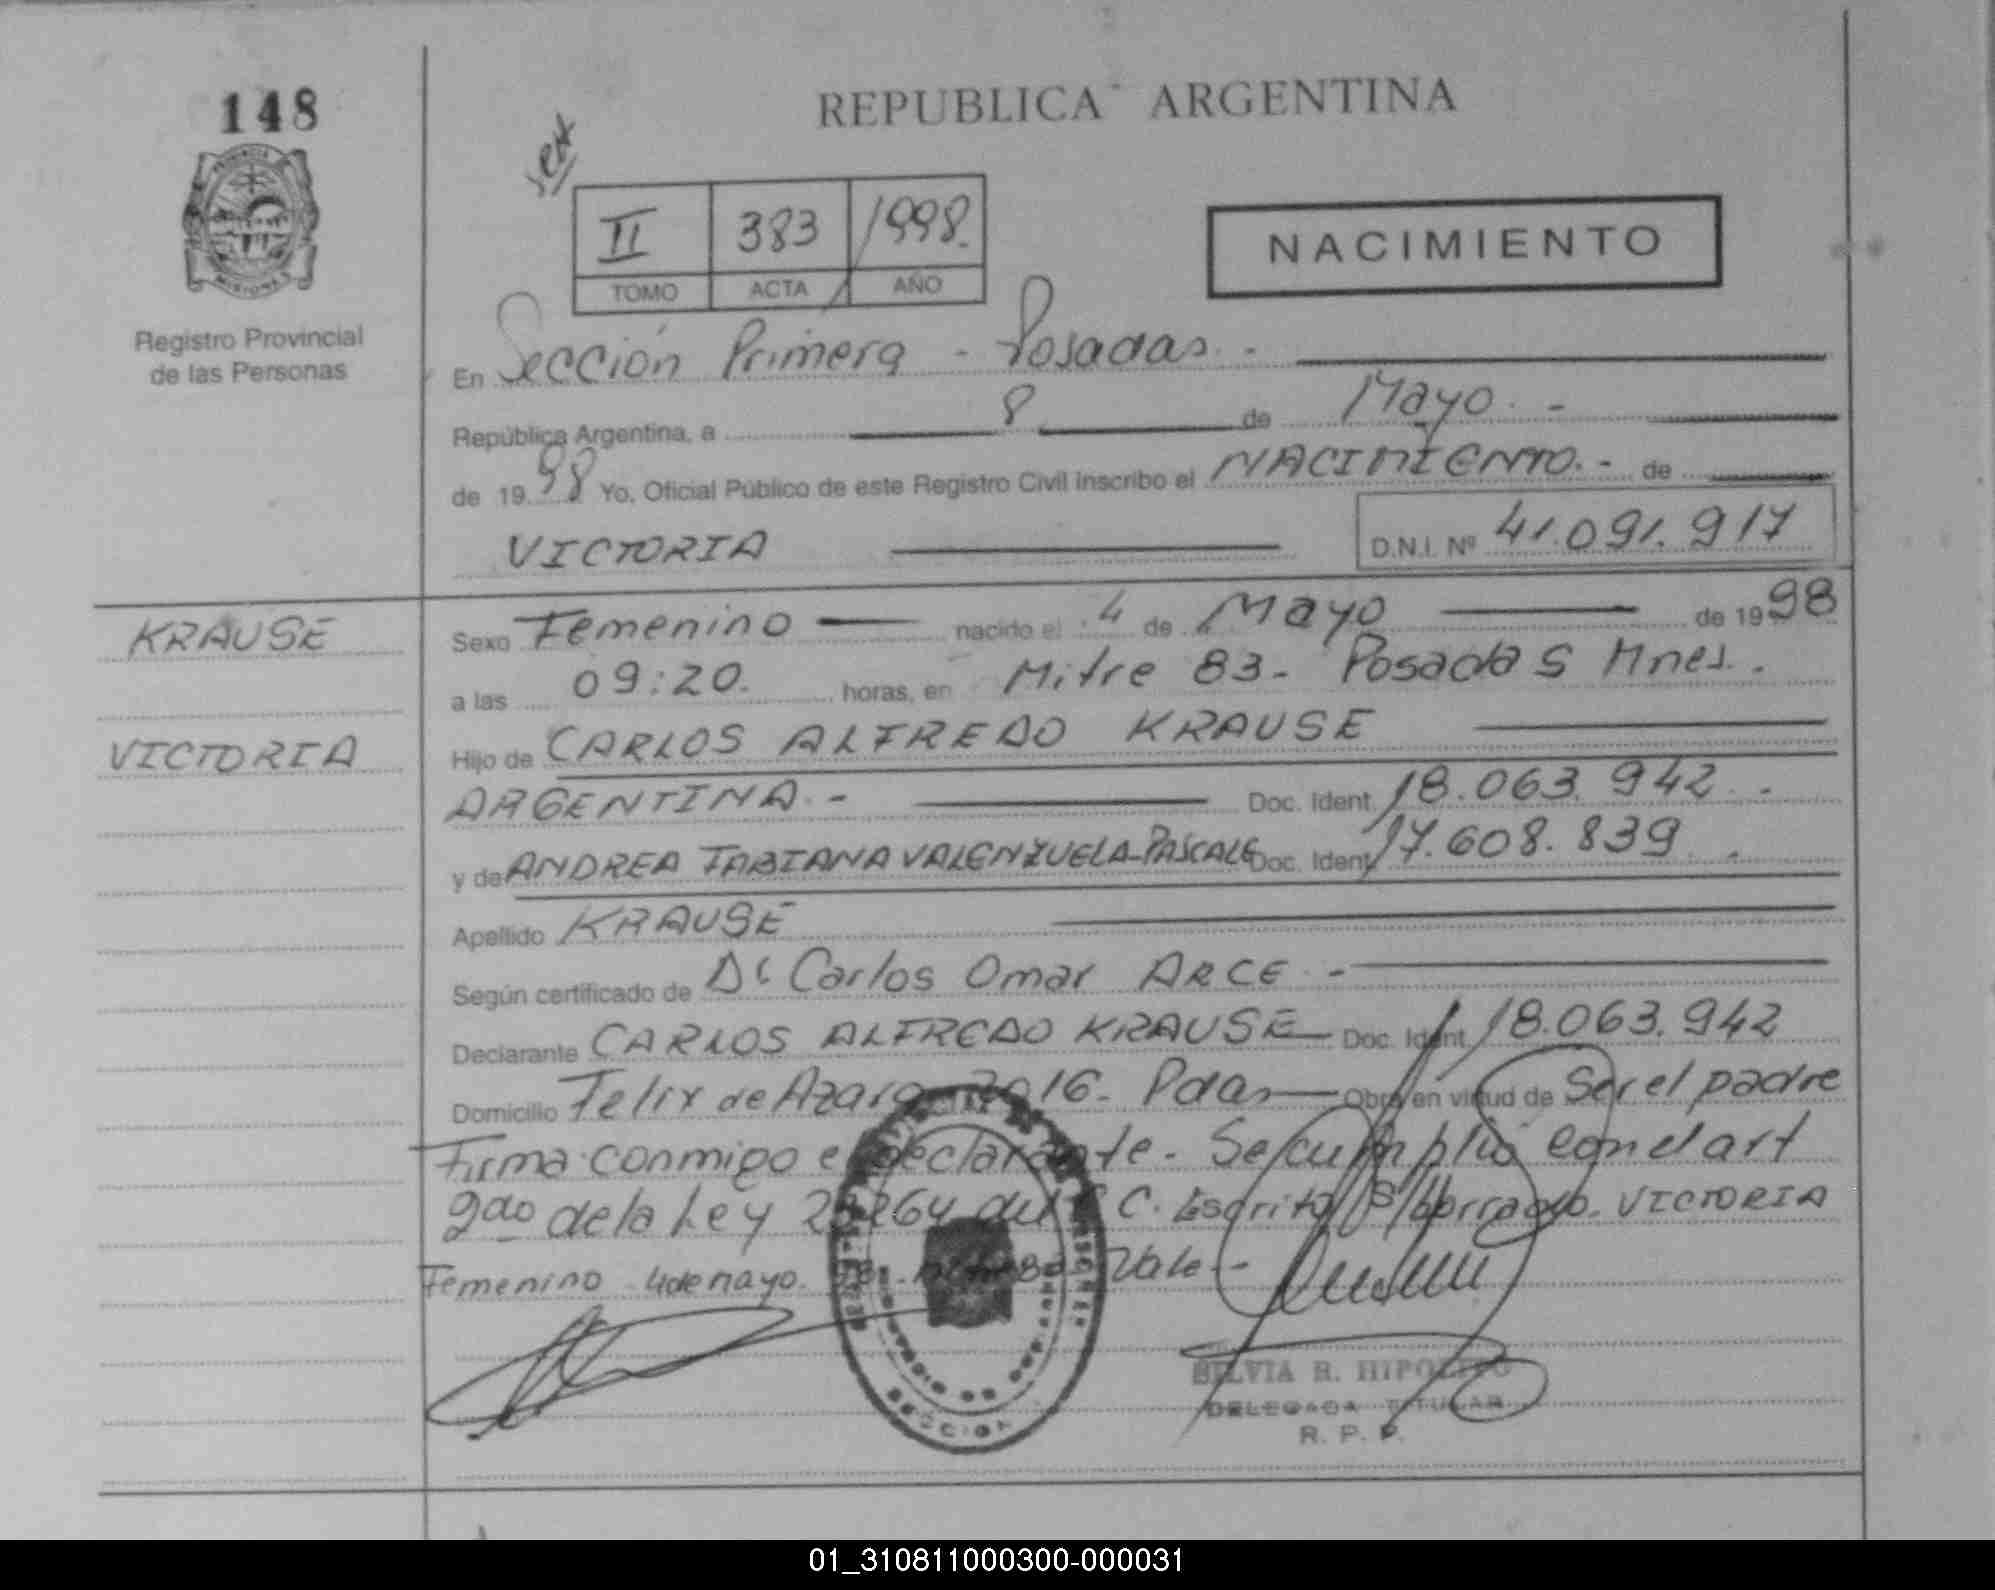 148
REPUBLICA ARGENTINA
PROVINCIA
MISIONES
Registro Provincial
de las Personas
II 383 1998.
TOMO ACTA AÑO
NACIMIENTO
En Sección Primera - Posadas. -
República Argentina, a 8 de Mayo. -
de 1998 Yo, Oficial Público de este Registro Civil inscribo el NACIMIENTO. - de
VICTORIA D.N.I. Nº 41.091.917
KRAUSE
VICTORIA
Sexo Femenino nacido el 4 de Mayo de 1998
a las 09:20. horas, en Mitre 83- Posadas Mnes.
Hijo de CARLOS ALFREDO KRAUSE
ARGENTINA. - Doc. Ident. 18.063.942. -
y de ANDREA FABIANA VALENZUELA-PASCALE Doc. Ident. 17.608.839. -
Apellido KRAUSE
Según certificado de Dr Carlos Omar ARCE. -
Declarante CARLOS ALFREDO KRAUSE Doc. Ident. 18.063.942
Domicilio Felix de Azara 2016. Pdas Obra en virtud de Ser el padre
Firma conmigo el declarante. Se cumplió con el art
2do de la Ley 23264 del C. C. Escrito S/borrado. VICTORIA
Femenino 4 de mayo. Vale -
SILVIA R. HIPOLITO
DELEGADA TITULAR
R. P. P.
SECCION
01_310811000300-000031